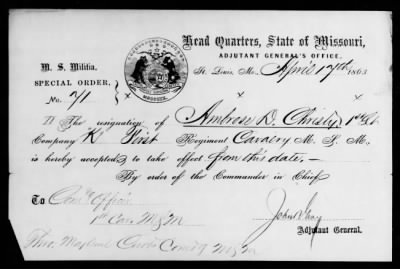 Head Quarters, State of Missouri,
ADJUTANT GENERAL'S OFFICE.
M. S. Militia.
St. Louis, Mo., April 17th 1863
SPECIAL ORDER,
No. 71
MISSOURI
I. The resignation of Ambrose D. Christy 1st Lt.
Company K First Regiment Cavalry M. S. M.,
is hereby accepted to take effect from this date.—
By order of the Commander in Chief
To Com'g Officer
1st Cav. M S M
Adjutant General.
Thro. Comd'g M S M